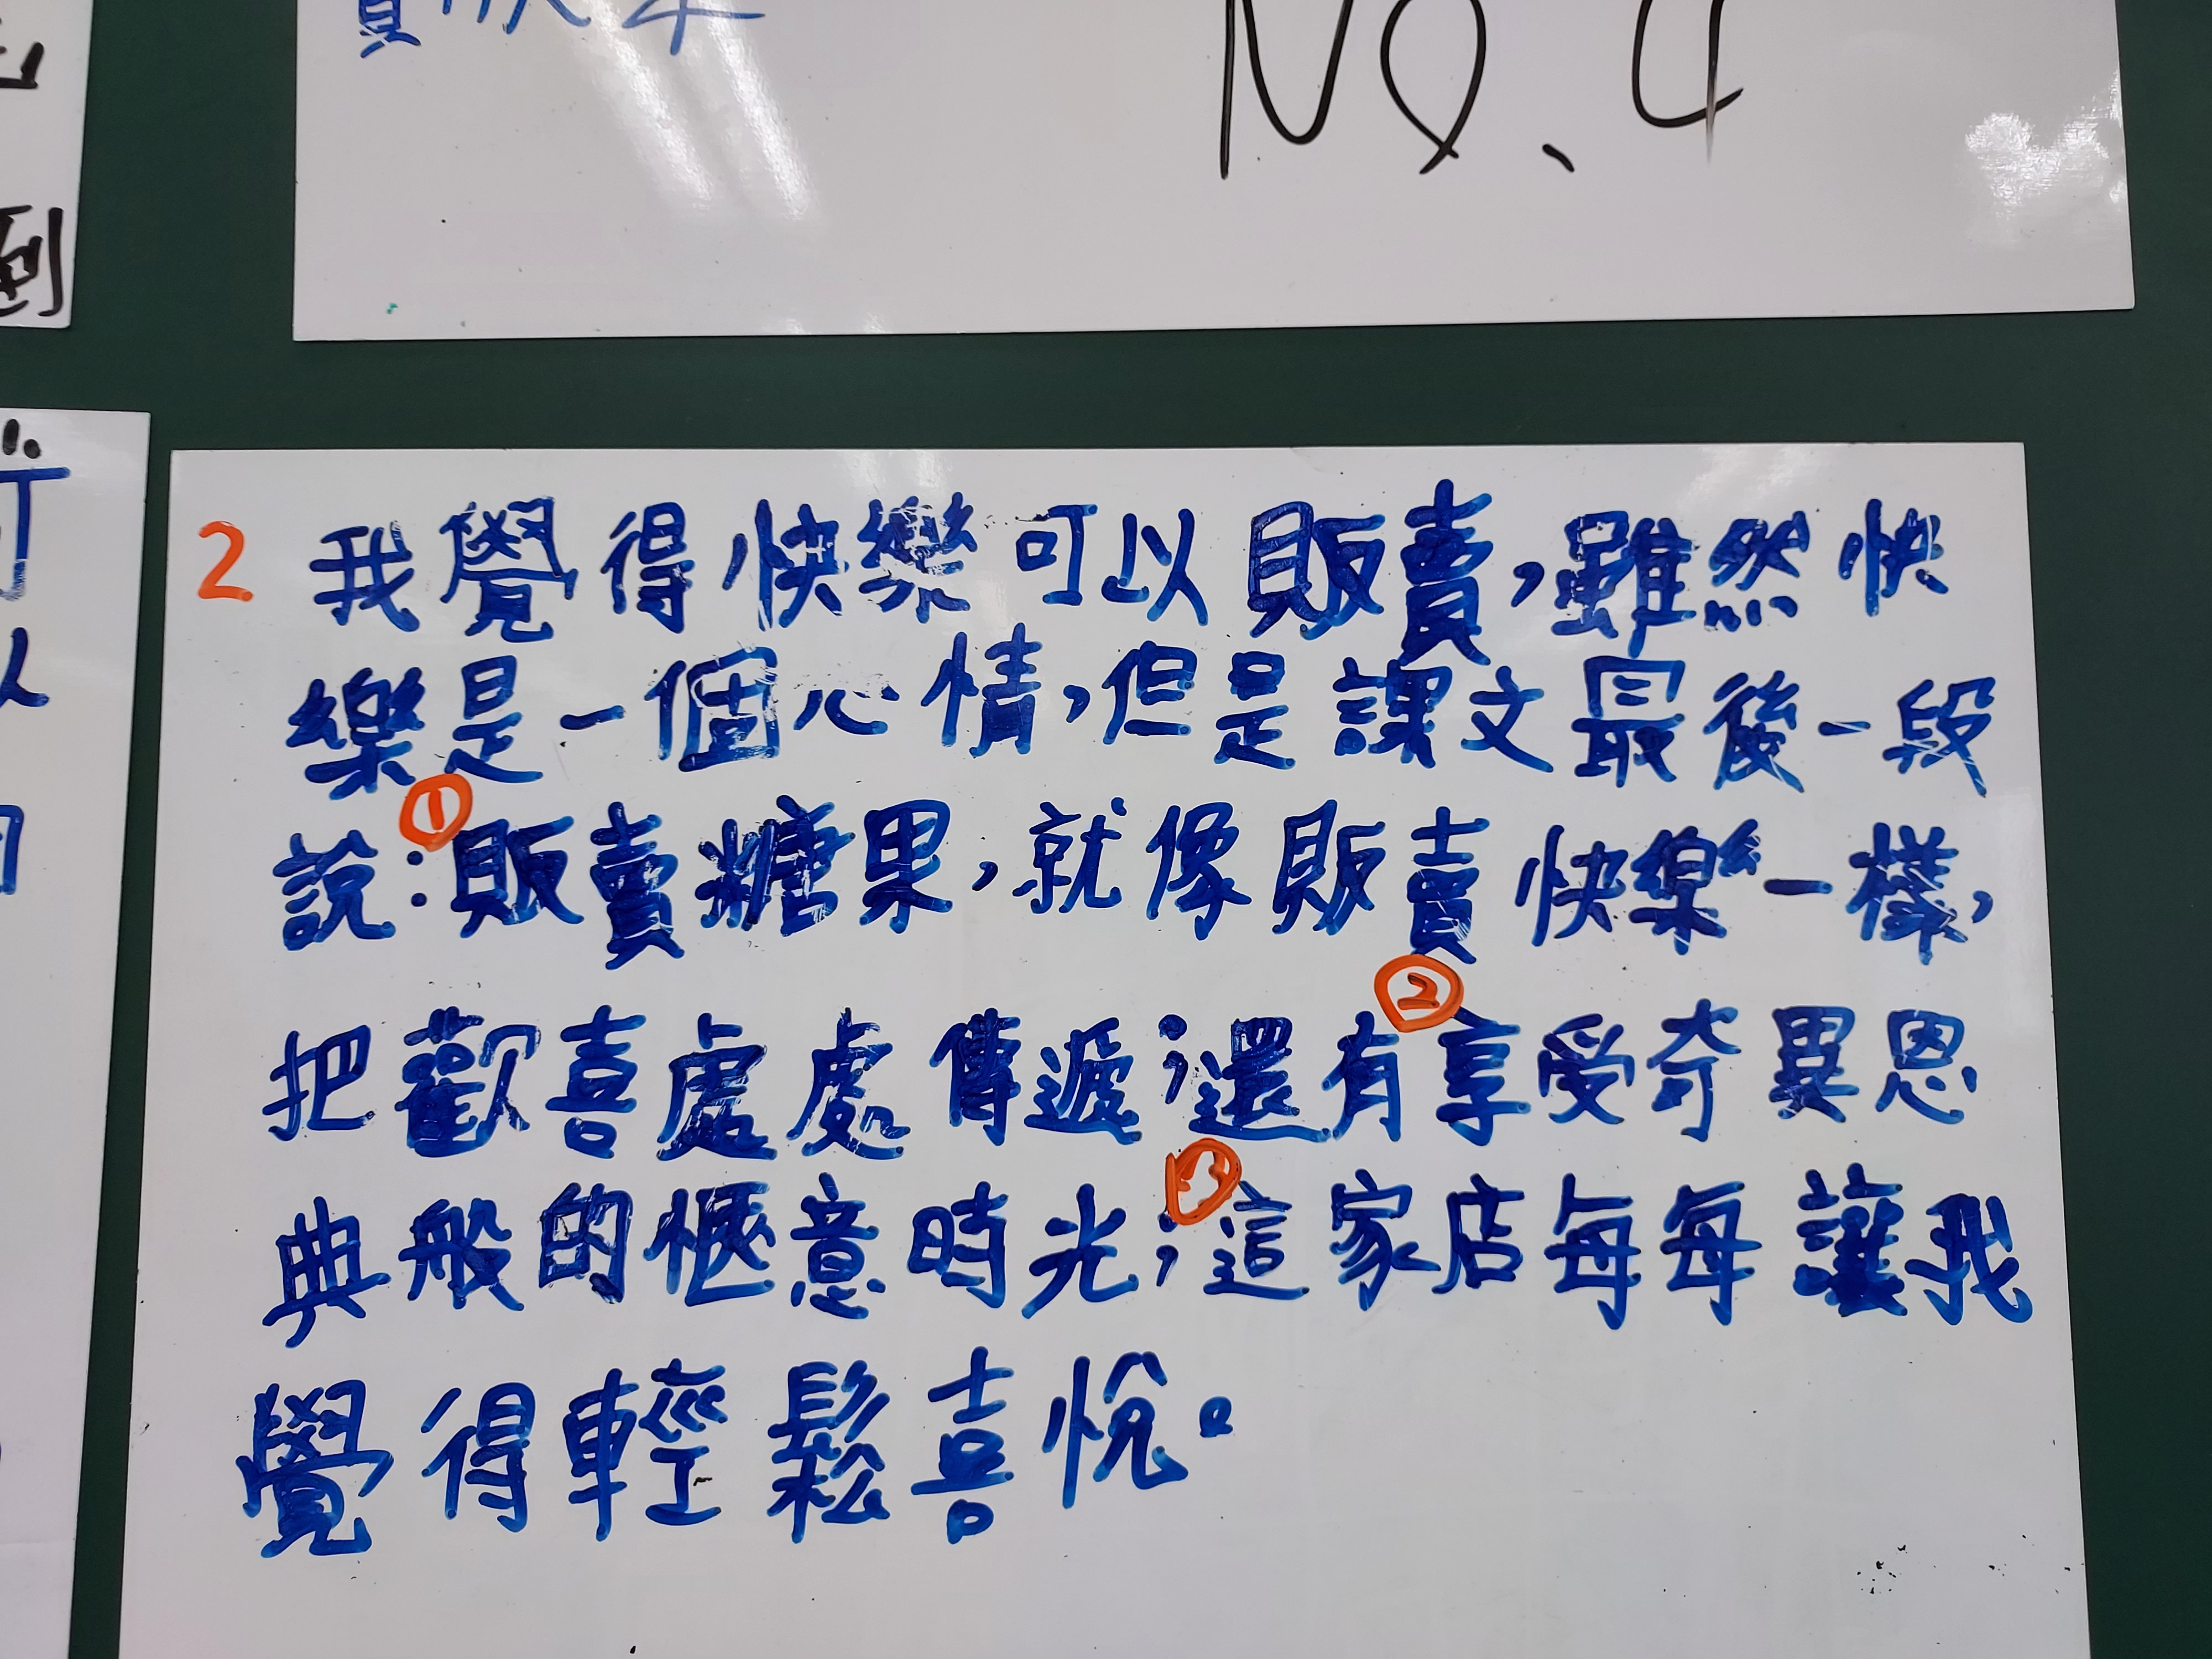 No.4
倒
2 我覺得快樂可以販賣,雖然快
樂是一個心情,但是課文最後一段
說:①販賣糖果,就像販賣快樂一樣,
把歡喜處處傳遞;還有②享受奇異恩
典般的愜意時光;這家店每每讓我
覺得輕鬆喜悅。